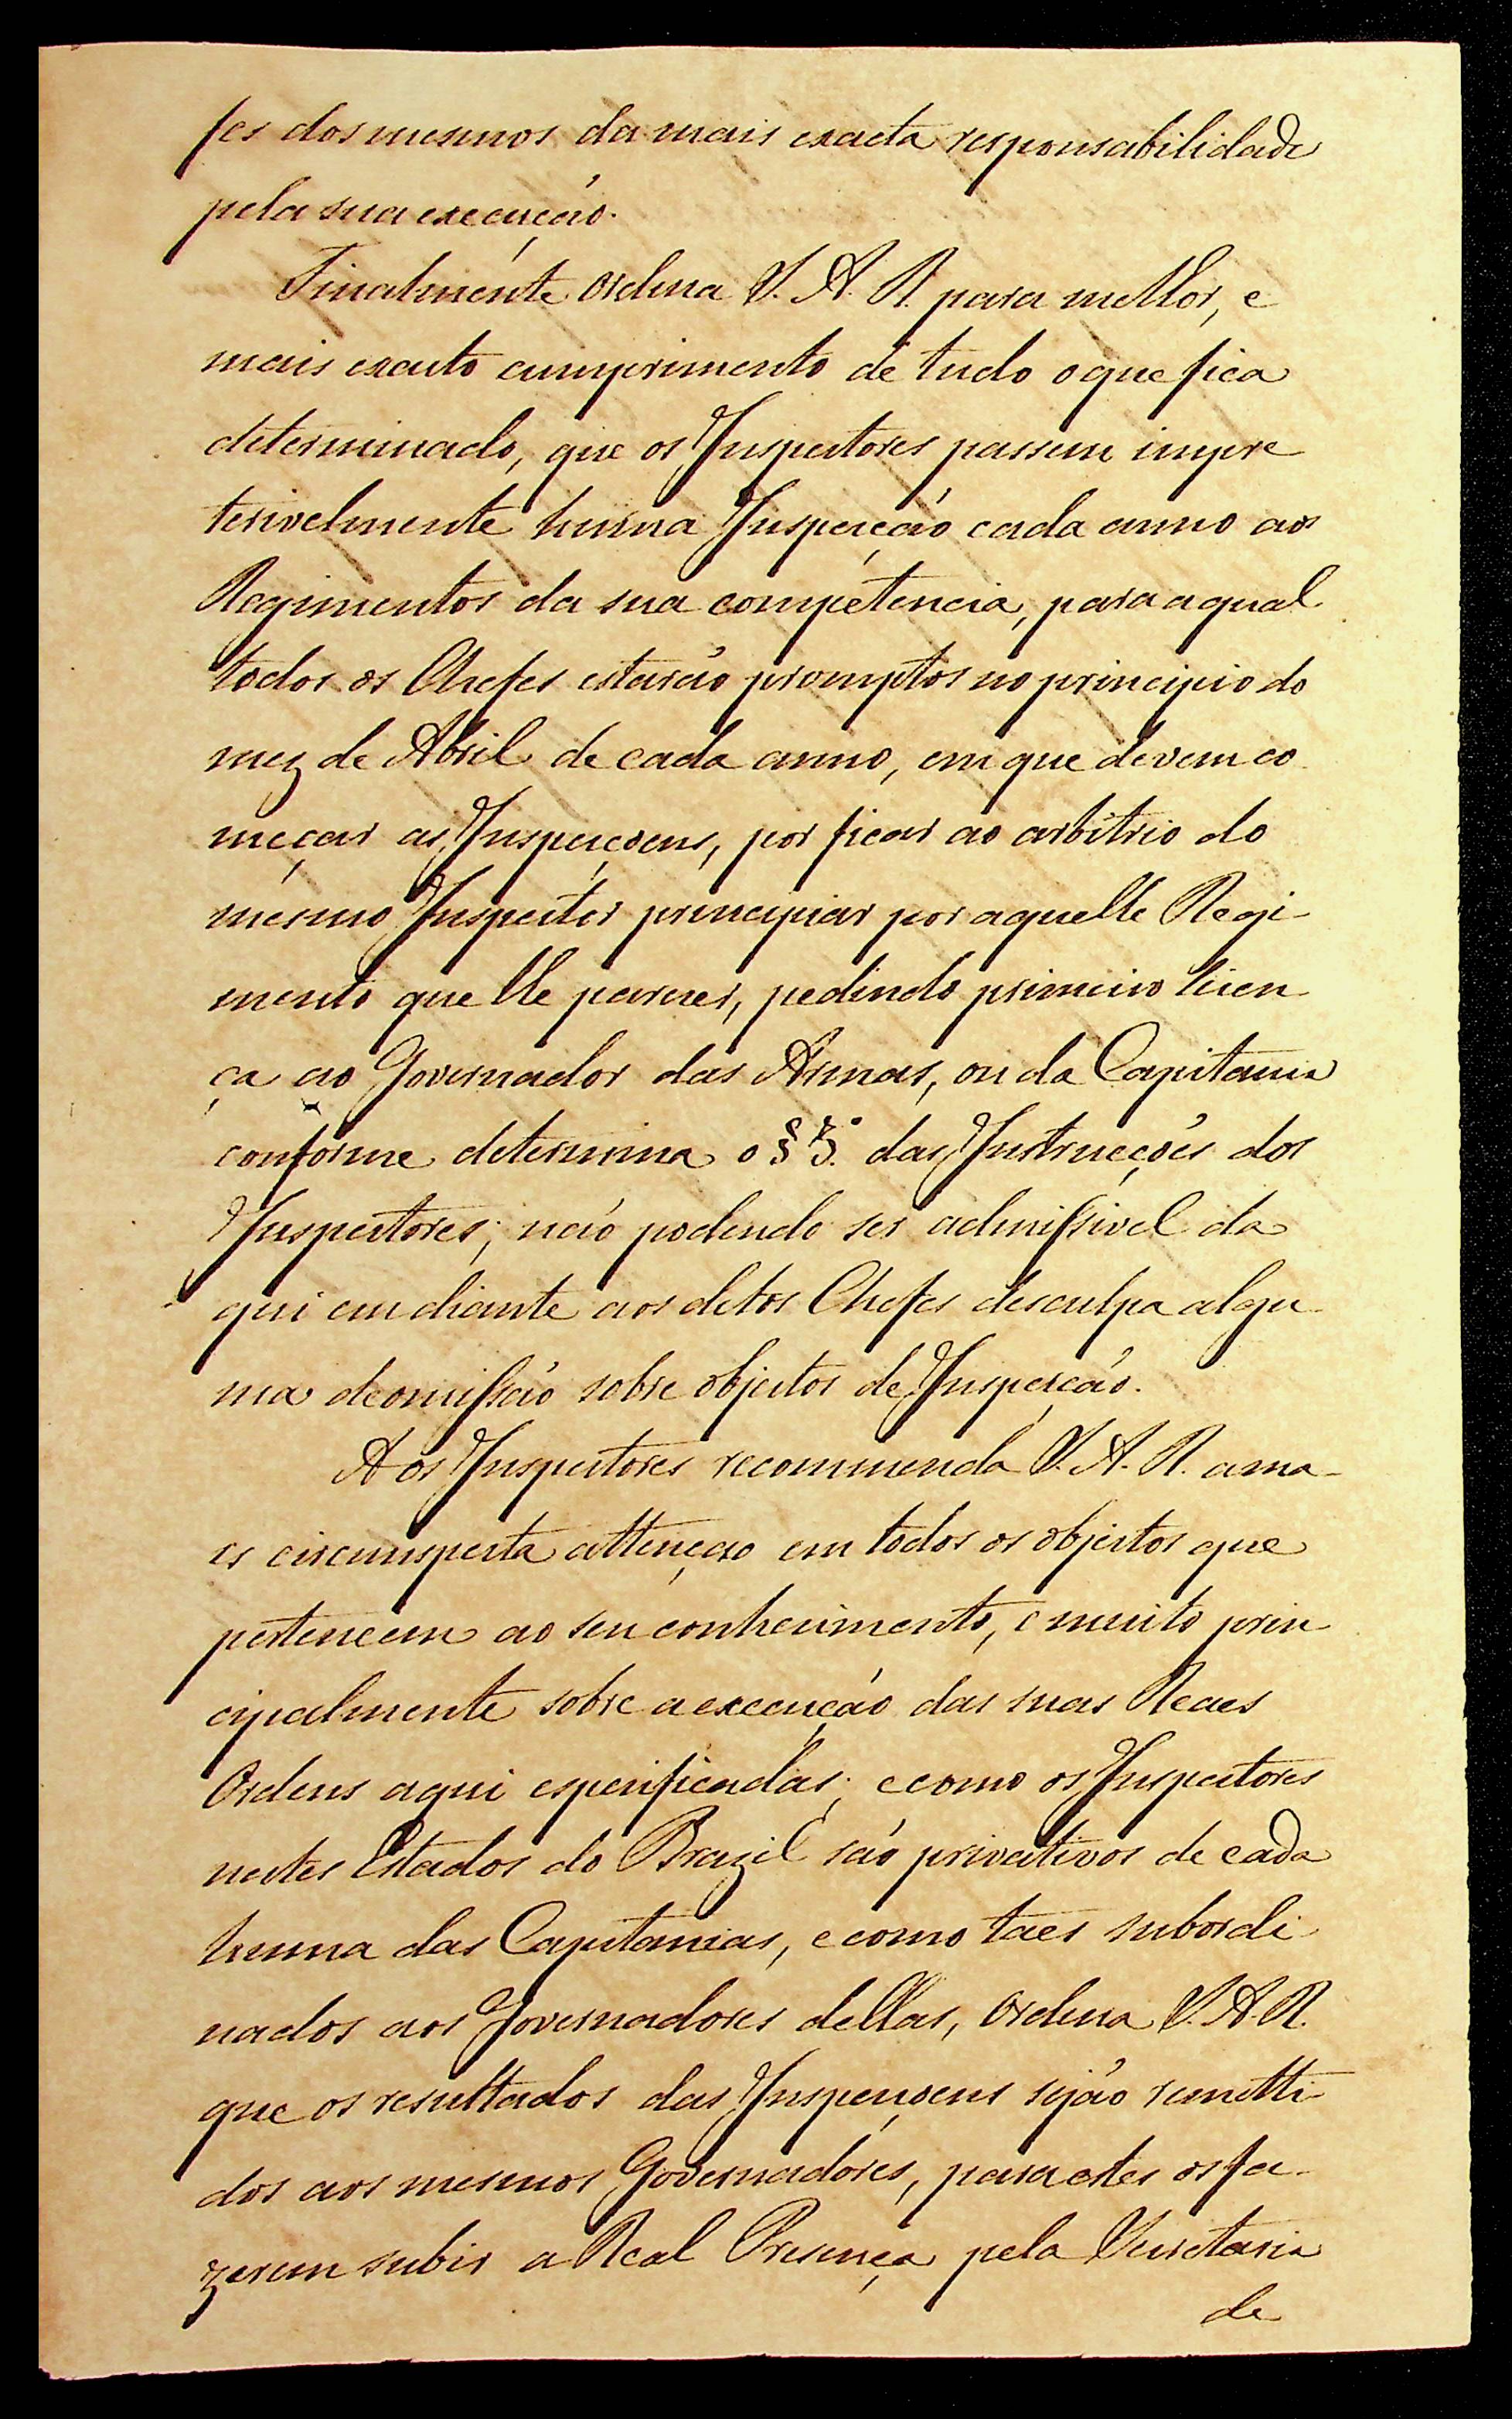 fes dos mesmos da mais exacta responsabilidade
pela sua execução.
Finalmente Ordena S. A. R. para melhor, e
mais exacto cumprimento de tudo o que fica
determinado, que os Inspectores passem impre
terivelmente huma Inspecção cada anno aos
Regimentos da sua competencia, para a qual
todos os Chefes estarão promptos no principio do
mez de Abril de cada anno, em que devem co
meçar as Inspecçoens, por ficar ao arbitrio do
mesmo Inspector principiar por aquelle Regi-
mento que lhe parecer, pedindo primeiro licen
ça ao Governador das Armas, ou da Capitania
conforme determina o § 5.º das Instrucções dos
Inspectores; não podendo ser admissivel da
qui em diante aos ditos Chefes desculpa algu-
ma de omissão sobre objectos de Inspecção.
Aos Inspectores recommenda S. A. R. a ma-
is circumspecta attenção em todos os objectos que
pertencem ao seu conhecimento, e muito prin
cipalmente sobre a execução das suas Reaes
Ordens aqui especificadas; e como os Inspectores
nestes Estados do Brazil são privativos de cada
huma das Capitanias, e como taes subordi
nados aos Governadores dellas, Ordena S. A. R.
que os resultados das Inspecçoens sejão remetti-
dos aos mesmos Governadores, para estes os fa-
zerem subir a Real Presença pela Secretaria
de